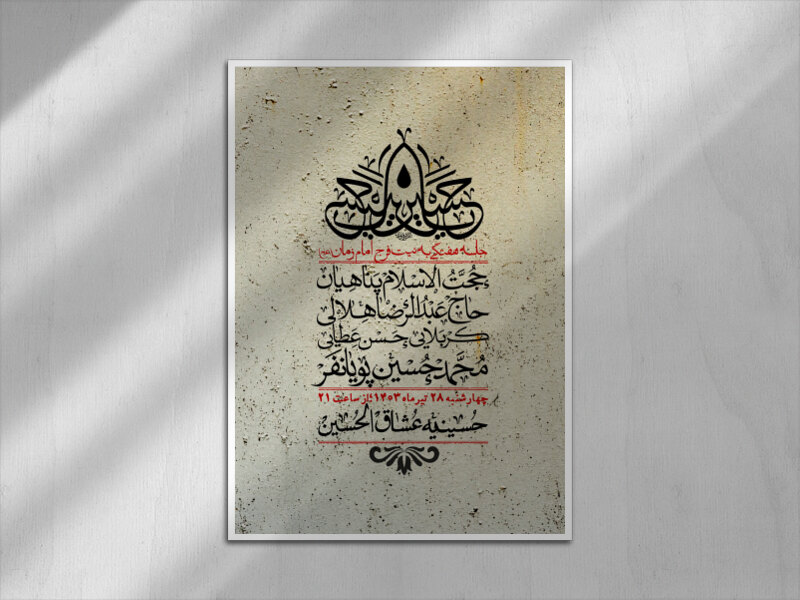 جلسه هفتگی به نیت فرج امام زمان (عج)
حُجَّتُ الاسلام پناهیان
حاج عَبْدُالرِّضا هلالی
کربلایی حَسَن عَطایی
مُحَمَّدحُسِین پویانفَر
چهارشنبه ۲۸ تیر ماه ۱۴۰۳ ؛از ساعت ۲۱
حُسینیه عُشاق الحُسین